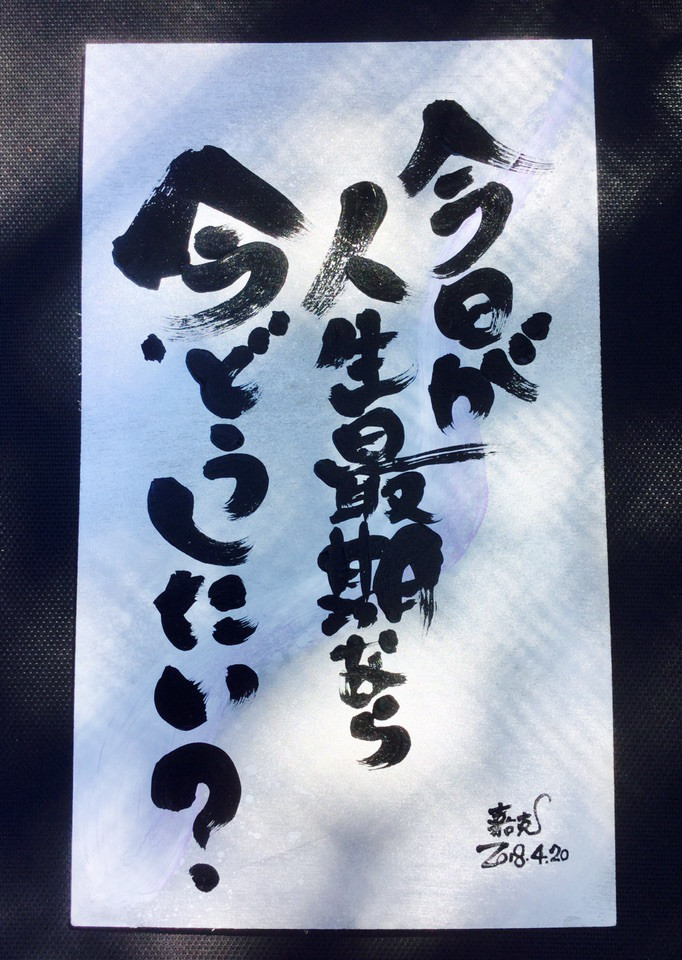 今日が
人生最期なら
今、どうしたい？
嘉克
2018.4.20